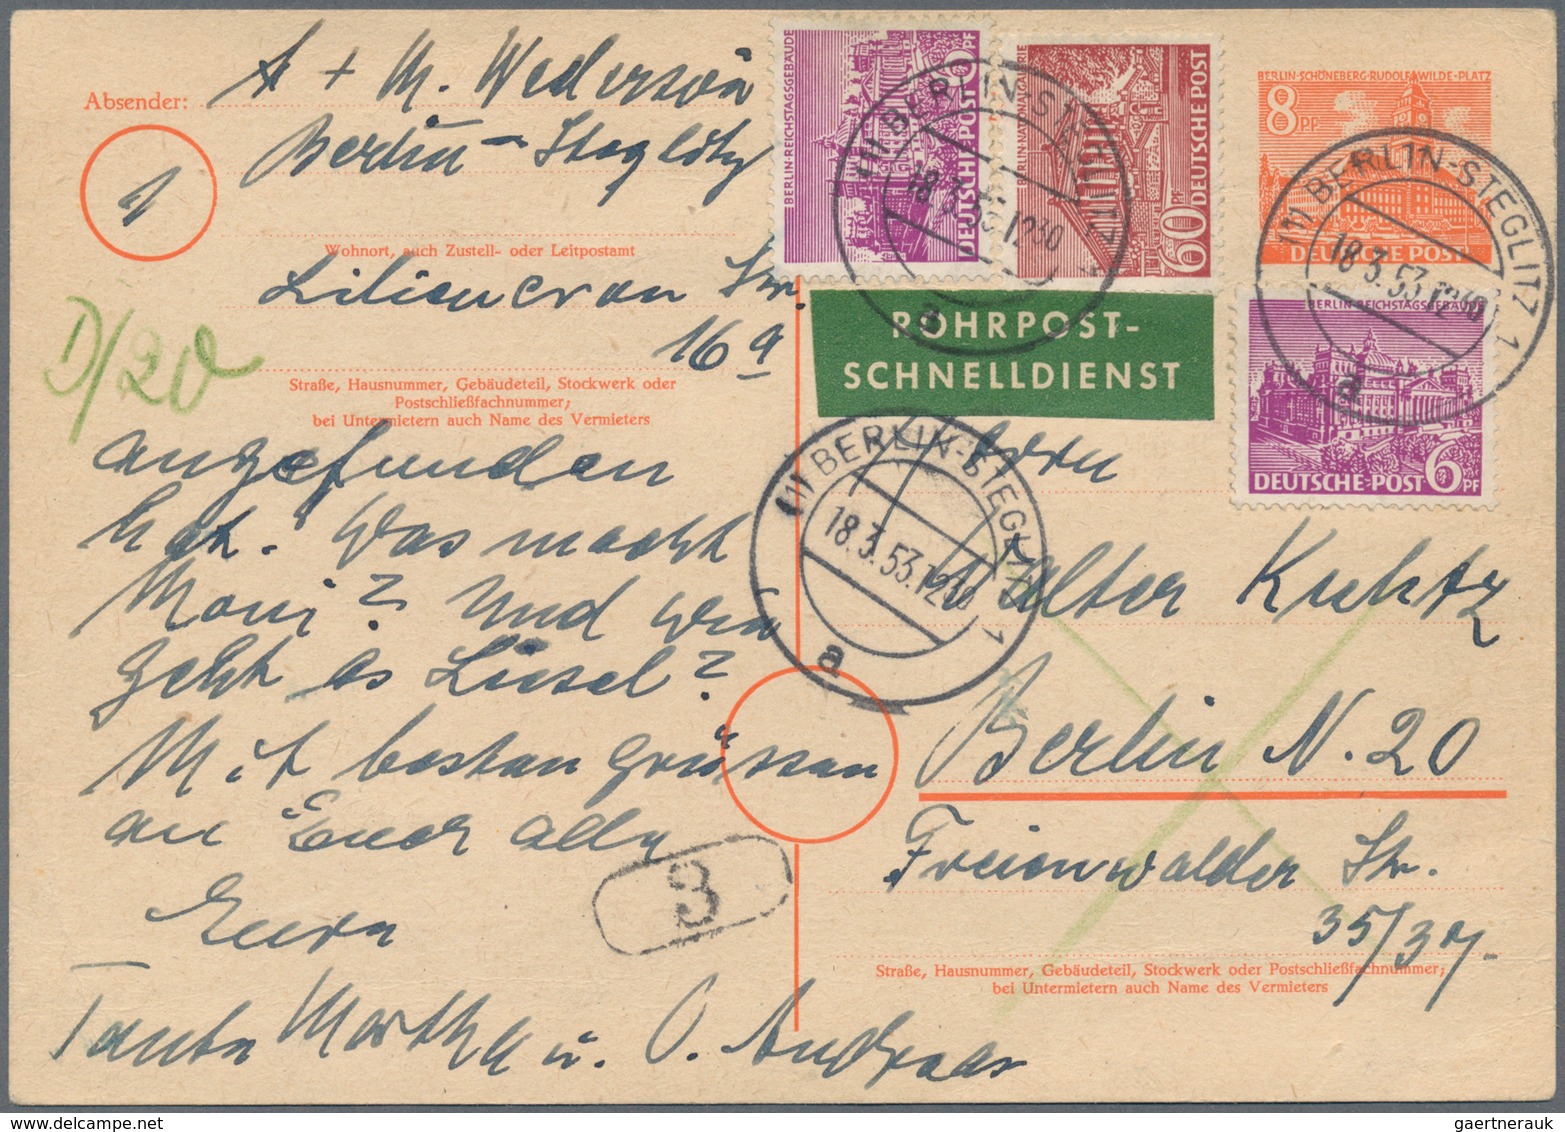 Absender:
A + M. Wederson
Berlin-Steglitz
1
Wohnort, auch Zustell- oder Leitpostamt
Liliencron Str.
16a
Straße, Hausnummer, Gebäudeteil, Stockwerk oder
Postschließfachnummer;
bei Untermietern auch Name des Vermieters
D/20
angefunden
hat. Was macht
Moni? Und wie
geht es Liesel?
Mit besten Grüssen
an Euer alle
Eure
Tante Martha u. O. Andreas
3
BERLIN-REICHSTAGSGEBÄUDE
DEUTSCHE-POST 6 PF
DEUTSCHE POST
60
BERLIN-SCHÖNEBERG-RUDOLF WILDE-PLATZ
8 PF
DEUTSCHE POST
BERLIN-REICHSTAGSGEBÄUDE
DEUTSCHE-POST 6 PF
(1) BERLIN-STEGLITZ 1
18.3.53.1230
a
(1) BERLIN-STEGLITZ 1
18.3.53.1230
a
(1) BERLIN-STEGLITZ 1
18.3.53.1230
a
ROHRPOST-
SCHNELLDIENST
Herrn
Walter Kuhtz
Berlin N. 20
Freienwalder Str.
35/37.
Straße, Hausnummer, Gebäudeteil, Stockwerk oder Postschließfachnummer;
bei Untermietern auch Name des Vermieters
gaertnerauk